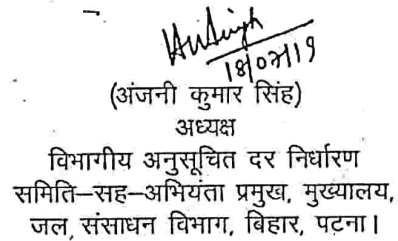 18/07/19
(अंजनी कुमार सिंह)
अध्यक्ष
विभागीय अनुसूचित दर निर्धारण
समिति–सह–अभियंता प्रमुख, मुख्यालय,
जल, संसाधन विभाग, बिहार, पटना।